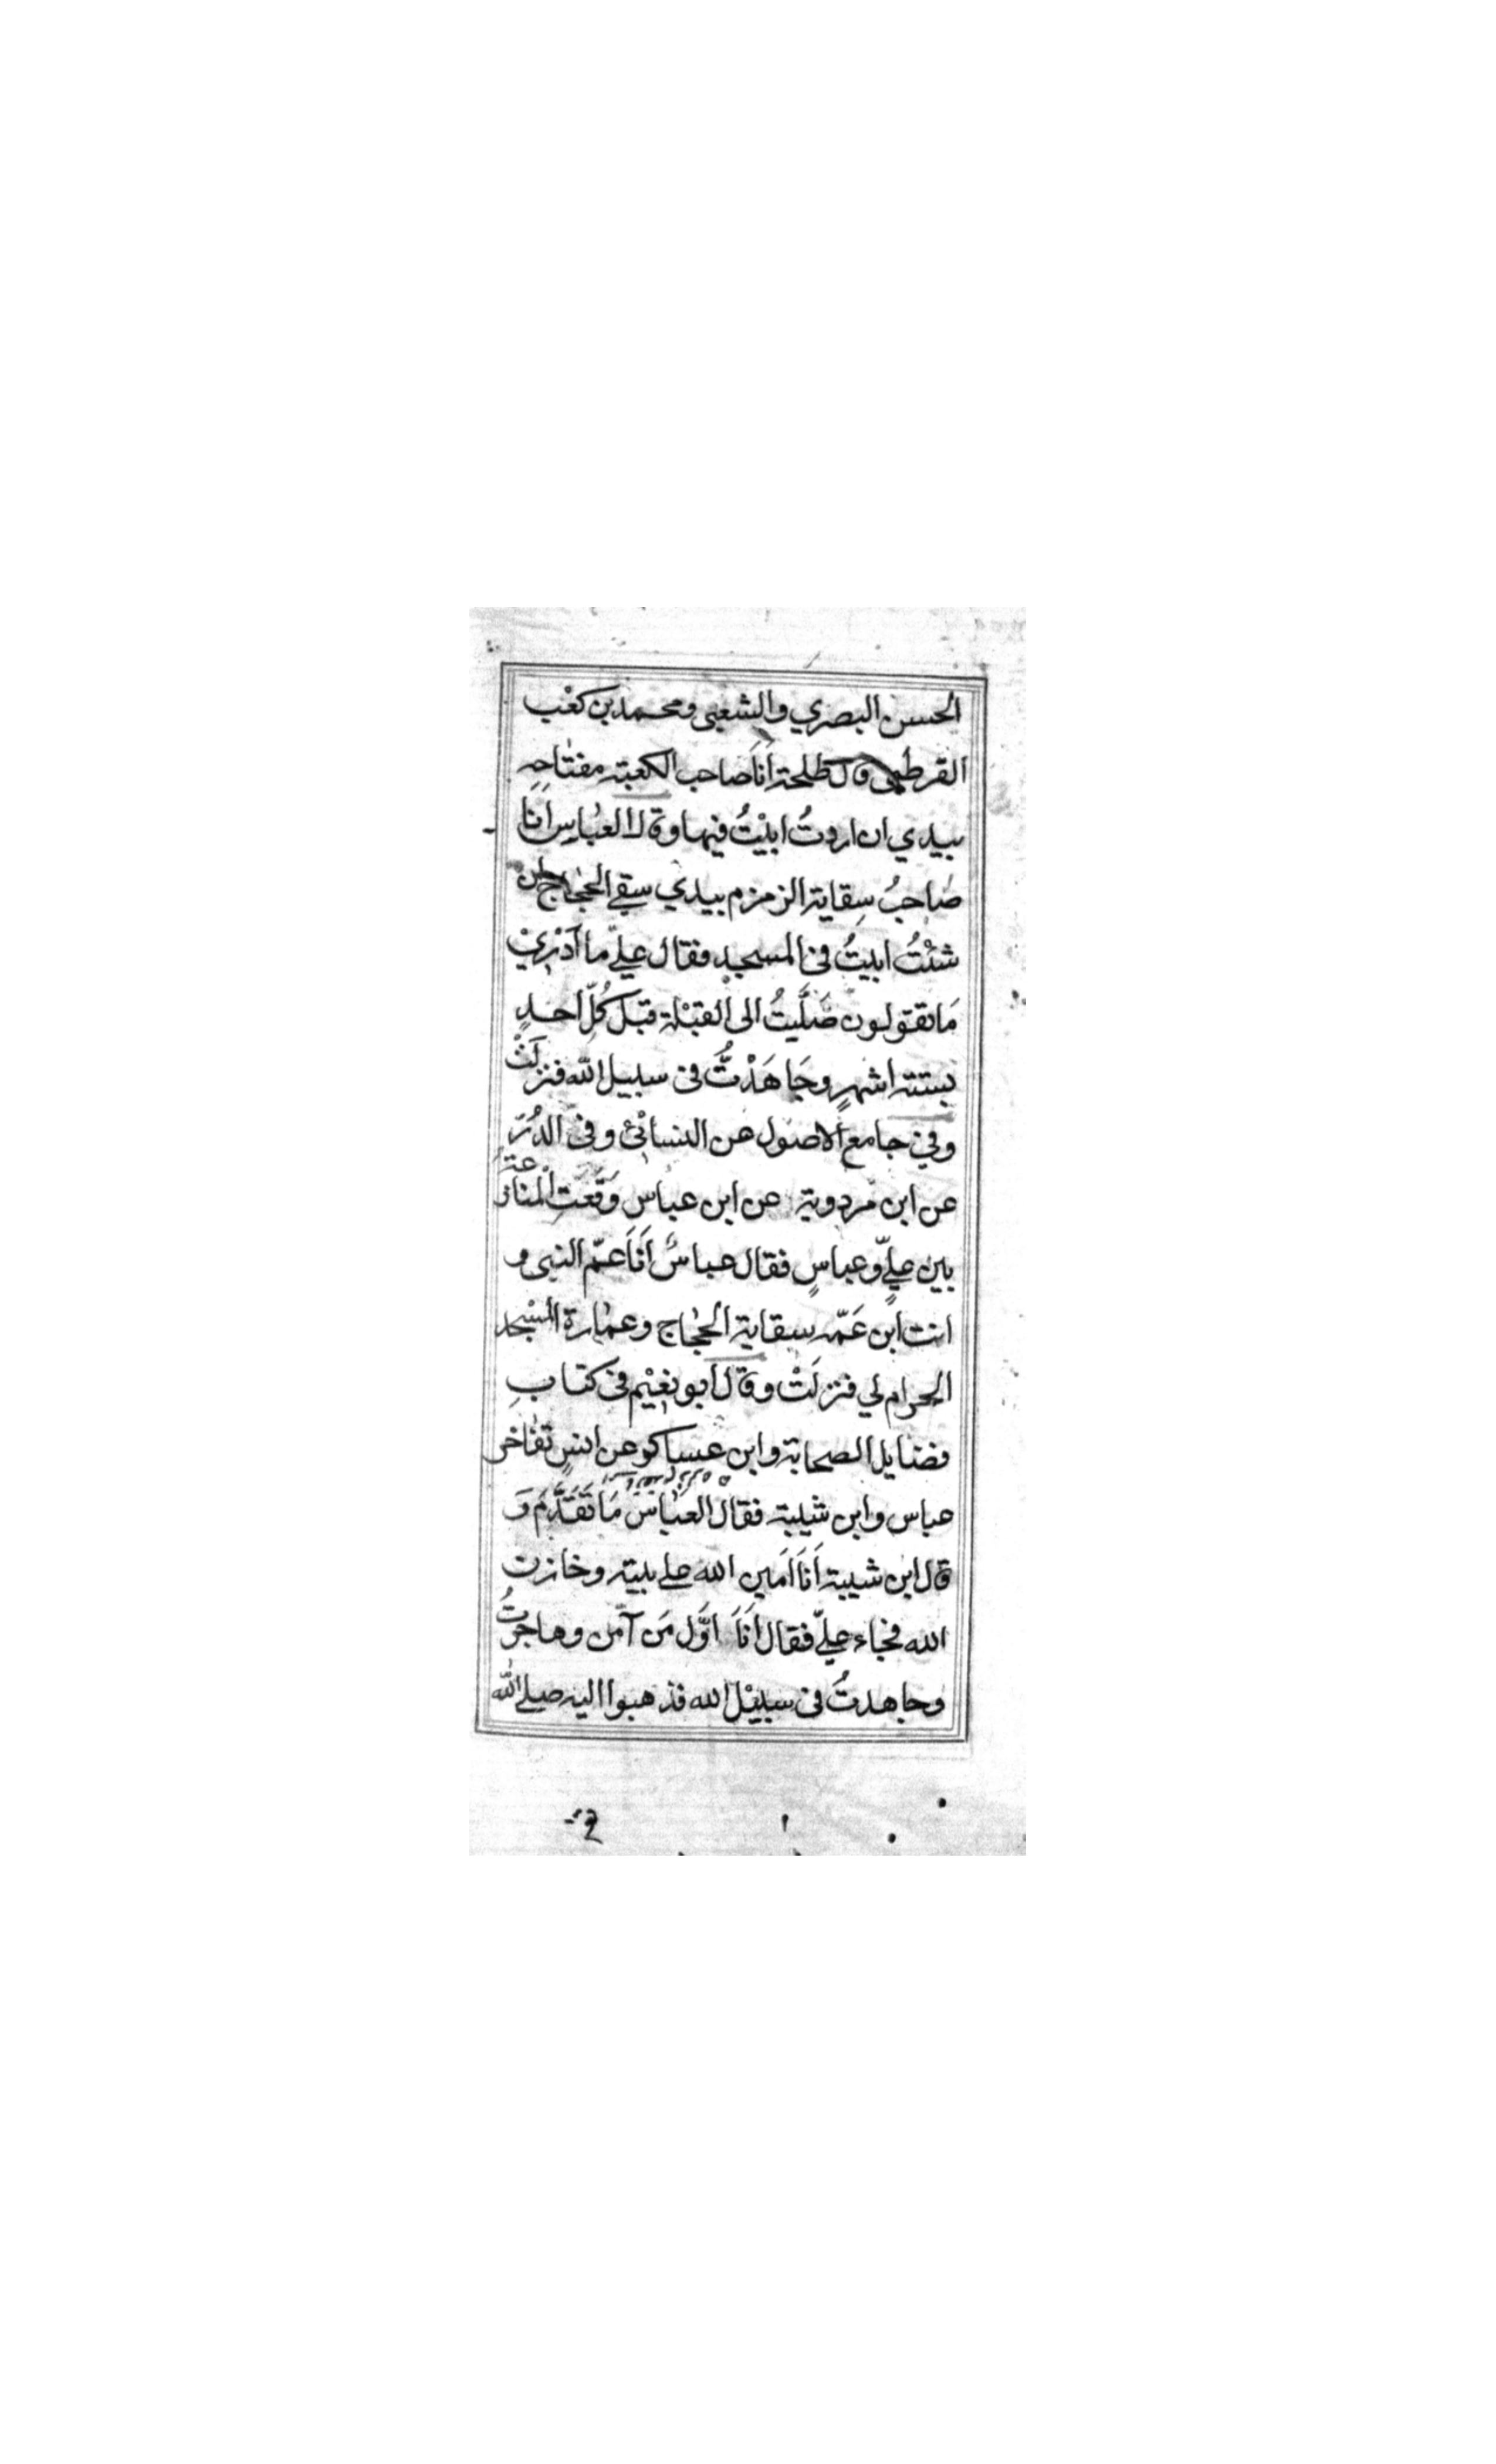 الحسن البصري والشعبى ومحمد بن كعْب
القرطبى قال طلحة اَنَا صاحب الكعبة مفتاحه
بيدي ان اردتُ ابيْتُ فيها وقال العباس اَنَا
صَاحبُ سِقاية الزمزم بيدي سقے الحجاج ان
شئْتُ ابيتُ فى المسجد فقال علےّ ما اَدْرِيْ
مَا تقولون صَلَّيتُ الى القبْلة قبل كُلّ احدٍ
بستة اشهرٍ وجَاهَدْتُّ فى سبيل الله فنزلَتْ
وفي جامع الاصول عن النسائى وفى الدُّرَ
عن ابن مردوية عن ابن عباس وَقَعَتِ المنازعة
بين علےٍّ وعباسٍ فقال عباسٌ اَنَا عمّ النبى و
انت ابن عَمّه سقاية الحجاج وعمارة المسْجد
الحرام لي فنزلَتْ وقال ابو نعَيْم فى كتاب
فضايل الصحابة وابن عساكر عن انسٍ تفاخر
عباس وابن شيبة فقال العباسُ مَا تَقَدَّمَ وَ
قال ابن شيبة اَنَا اَمين الله علے بيته وخازن
الله فجاء علےّ فقال اَنَا اوَّل مَن آمن وهاجرتُ
وجاهدتُ فى سبيْل الله فذهبوا اليه صلے الله